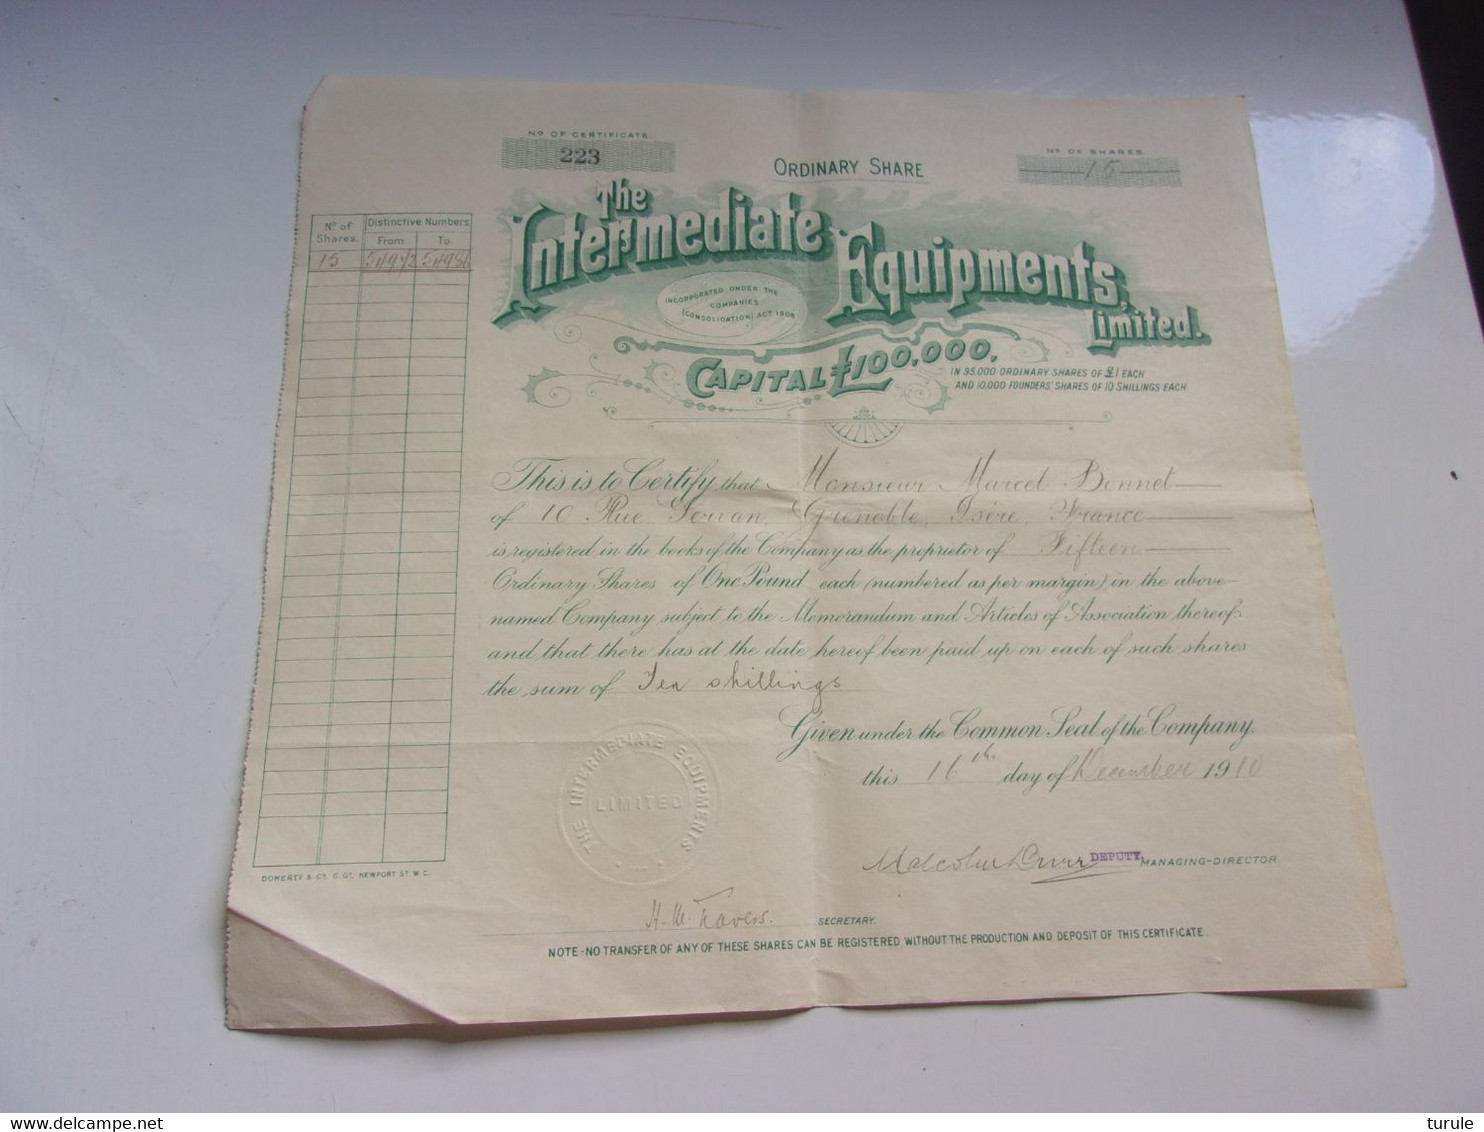 No OF CERTIFICATE.
223
ORDINARY SHARE
No. OF SHARES
15
The
Intermediate
Equipments,
Limited.
INCORPORATED UNDER THE
COMPANIES
(CONSOLIDATION) ACT 1908
CAPITAL £100,000,
IN 95,000 ORDINARY SHARES OF £1 EACH
AND 10,000 FOUNDERS' SHARES OF 10 SHILLINGS EACH
No. of Shares.
Distinctive Numbers
From To
15
This is to Certify that Monsieur Marcel Bonnet
of 10 Rue Servan, Grenoble, Isère, France
is registered in the books of the Company as the proprietor of Fifteen
Ordinary Shares of One Pound each (numbered as per margin) in the above-
named Company subject to the Memorandum and Articles of Association thereof
and that there has at the date hereof been paid up on each of such shares
the sum of Ten shillings
Given under the Common Seal of the Company
this 16th. day of December 1910
THE INTERMEDIATE EQUIPMENTS
LIMITED
Malcolm DEPUTY MANAGING-DIRECTOR
H. W. Travers. SECRETARY.
NOTE - NO TRANSFER OF ANY OF THESE SHARES CAN BE REGISTERED WITHOUT THE PRODUCTION AND DEPOSIT OF THIS CERTIFICATE.
DOHERTY & Co. 6, Gt. NEWPORT ST. W.C.
delcampe.net
turule